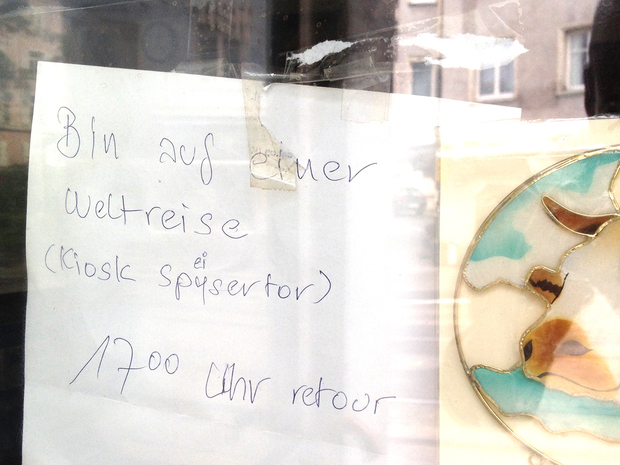 Bin auf einer
Weltreise
(Kiosk speisertor)
17⁰⁰ Uhr retour